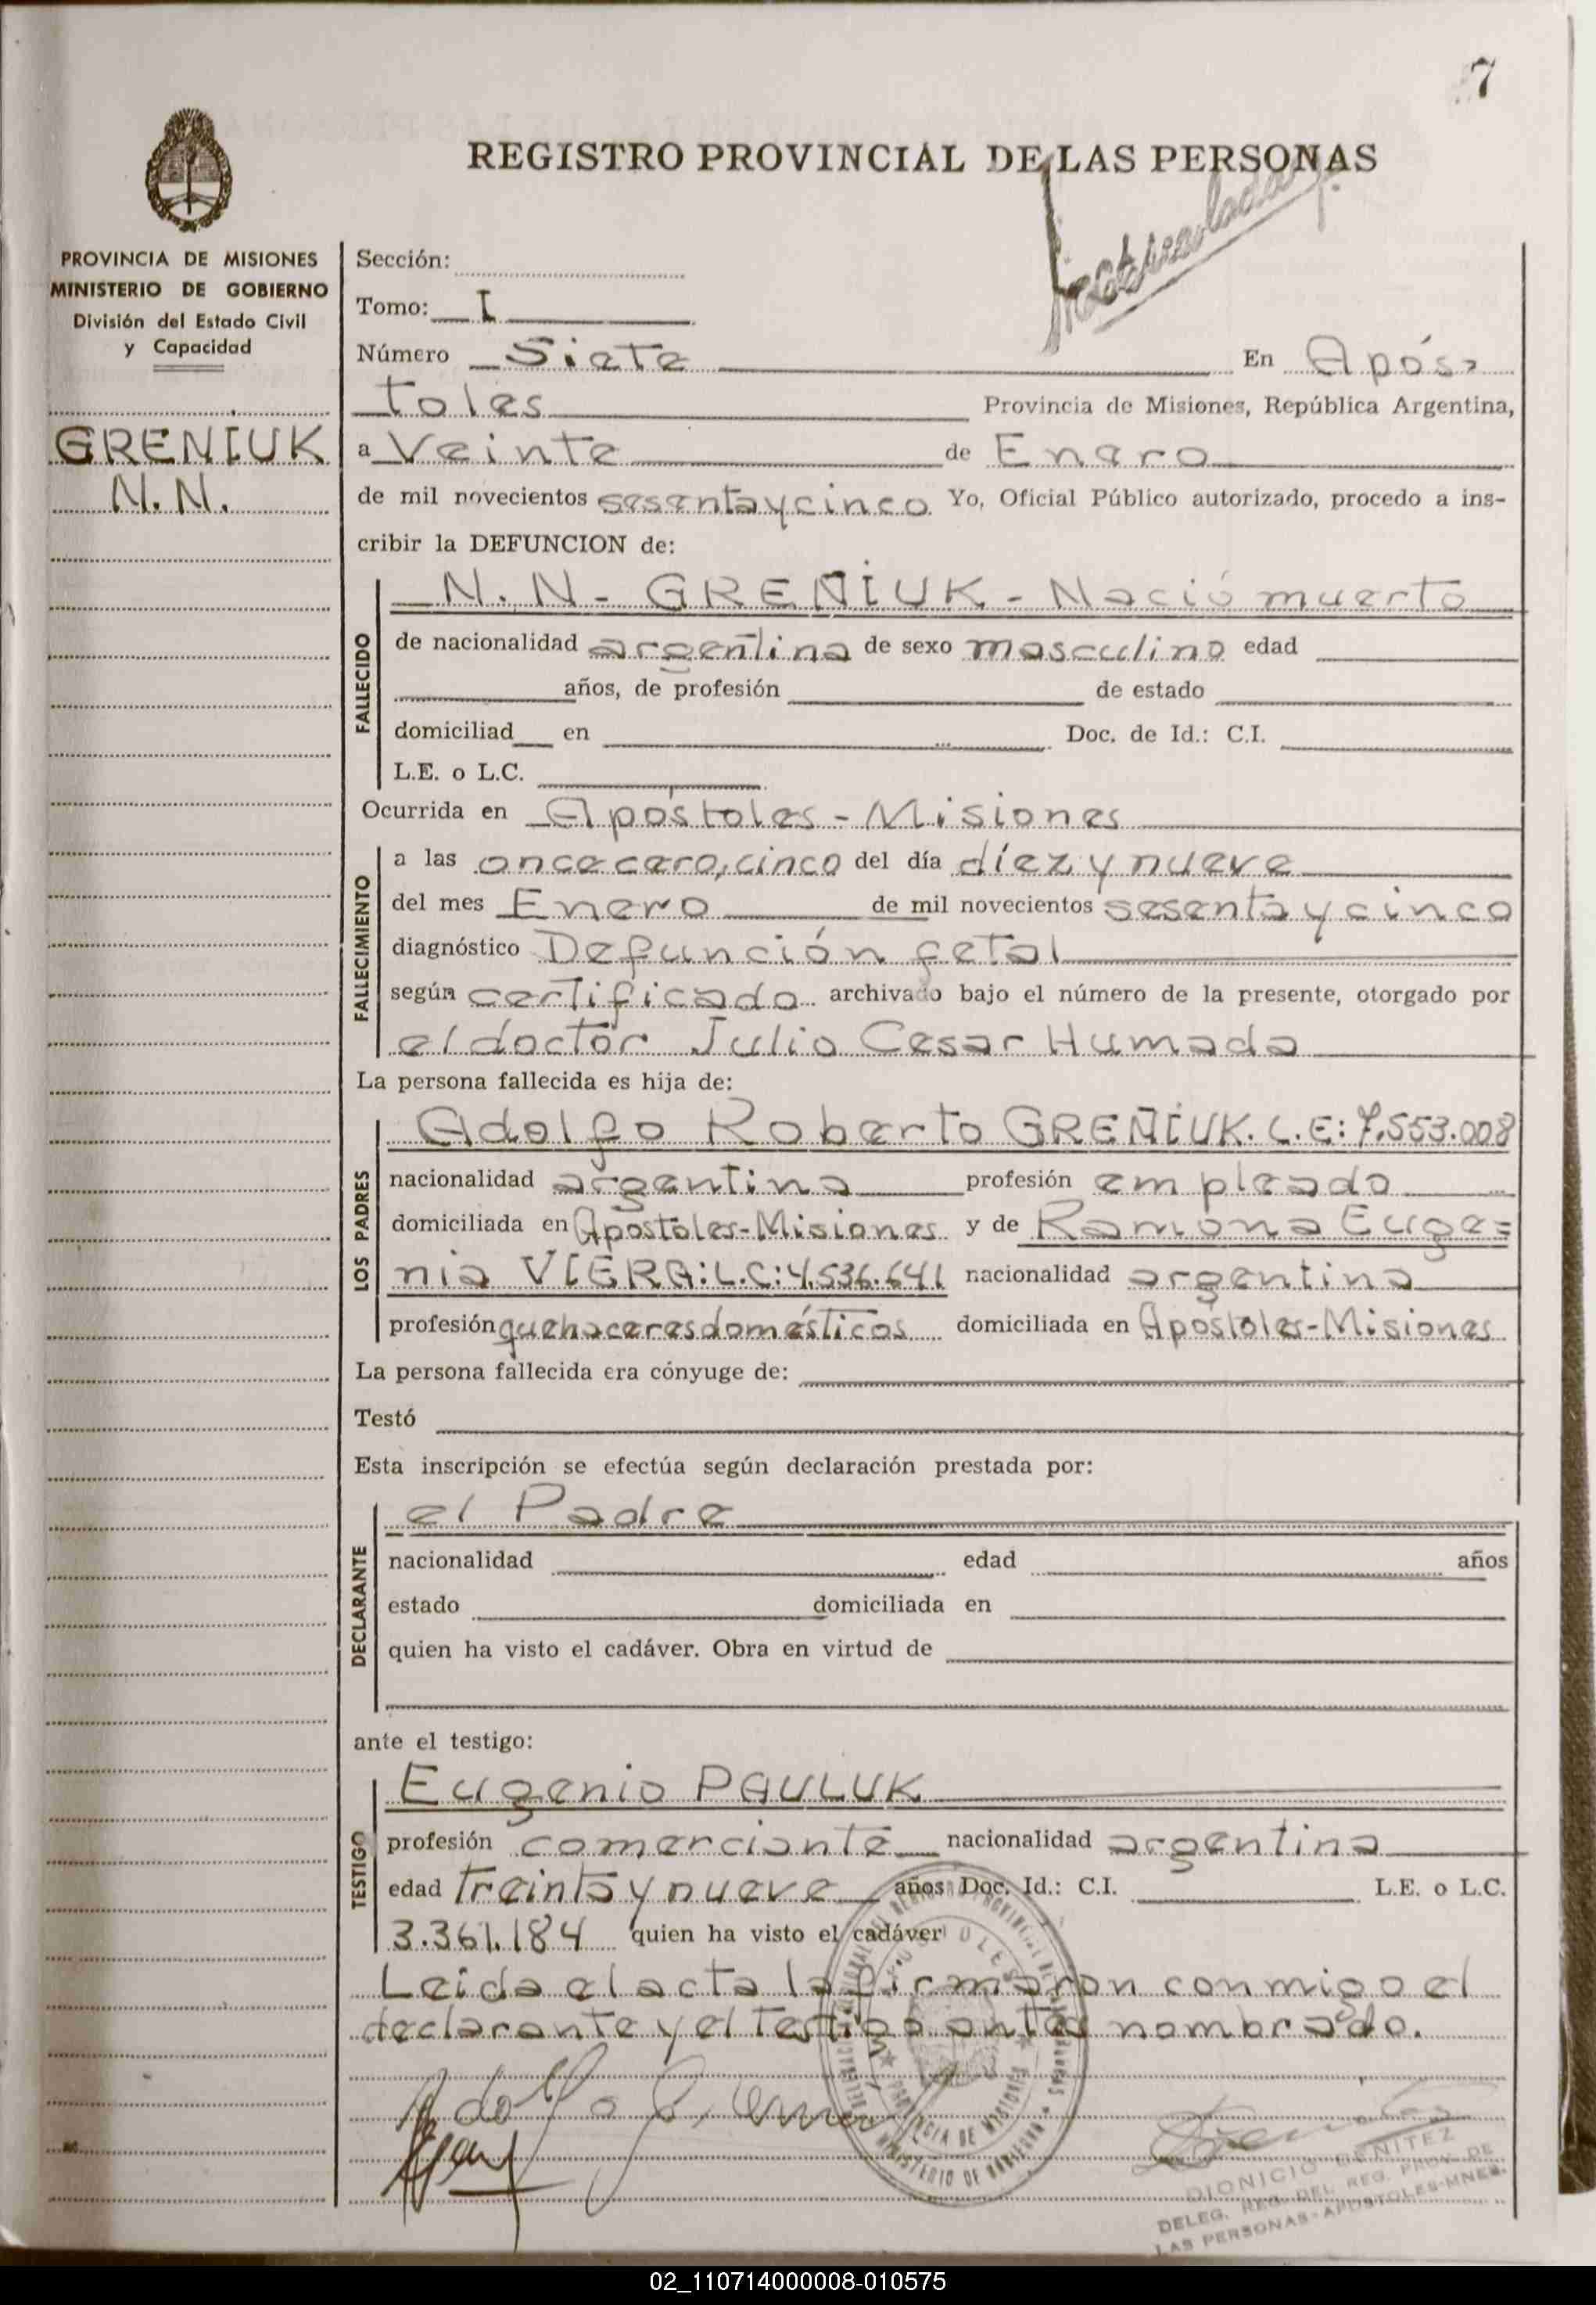 7
REGISTRO PROVINCIAL DE LAS PERSONAS
PROVINCIA DE MISIONES
MINISTERIO DE GOBIERNO
División del Estado Civil
y Capacidad
GRENIUK
N. N.
Sección:
Tomo: I
Número Siete En Após-
toles Provincia de Misiones, República Argentina,
a Veinte de Enero
de mil novecientos sesenta y cinco Yo, Oficial Público autorizado, procedo a ins-
cribir la DEFUNCION de:
FALLECIDO
N. N - GREÑIUK - Nació muerto
de nacionalidad argentina de sexo masculino edad
años, de profesión de estado
domiciliad en Doc. de Id.: C.I.
L.E. o L.C.
Ocurrida en Apóstoles - Misiones
FALLECIMIENTO
a las once cero, cinco del día diez y nueve
del mes Enero de mil novecientos sesenta y cinco
diagnóstico Defunción fetal
según certificado archivado bajo el número de la presente, otorgado por
el doctor Julio Cesar Humada
La persona fallecida es hija de:
LOS PADRES
Adolfo Roberto GREÑIUK. L.E: 7.553.008
nacionalidad argentina profesión empleado
domiciliada en Apostoles-Misiones y de Ramona Euge=
nia VIERA: L.C: 4.536.641 nacionalidad argentina
profesión quehaceres domésticos domiciliada en Apóstoles-Misiones
La persona fallecida era cónyuge de:
Testó
Esta inscripción se efectúa según declaración prestada por:
DECLARANTE
el Padre
nacionalidad edad años
estado domiciliada en
quien ha visto el cadáver. Obra en virtud de
ante el testigo:
TESTIGO
Eugenio PAULUK
profesión comerciante nacionalidad argentina
edad treinta y nueve años Doc. Id.: C.I. L.E. o L.C.
3.361.184 quien ha visto el cadáver
Leida el acta la firmaron conmigo el
declarante y el testigo antes nombrado.
APOSTOLES
PROVINCIA DE MISIONES
MINISTERIO DE GOBIERNO
DIONICIO BENITEZ
DELEG. REG. DEL REG. PROV. DE
LAS PERSONAS-APOSTOLES-MNES.
02_110714000008-010575